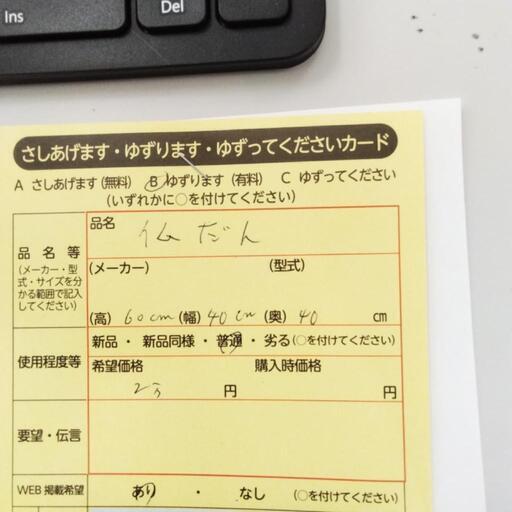 Ins
Del
さしあげます・ゆずります・ゆずってくださいカード
A さしあげます(無料) B ゆずります(有料) C ゆずってください
(いずれかに○を付けてください)
品名等
(メーカー・型
式・サイズを分
かる範囲で記入
してください)
品名
仏だん
(メーカー) (型式)
(高) 60cm (幅) 40cm (奥) 40 cm
使用程度等
新品・新品同様・普通・劣る(○を付けてください)
希望価格 購入時価格
2万 円 円
要望・伝言
WEB掲載希望 あり ・ なし (○を付けてください)